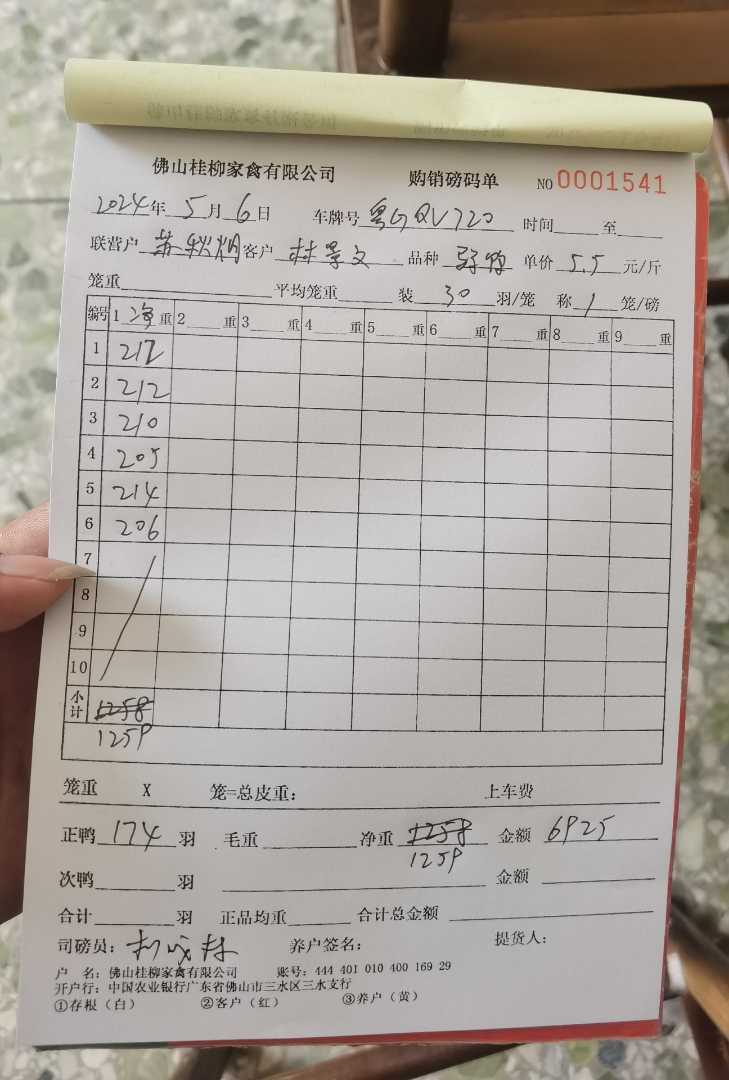 佛山桂柳家禽有限公司 购销磅码单 NO 0001541
2024年 5 月 6 日 车牌号 粤G QV720 时间 至
联营户 苏秋 客户 林景文 品种 单价 5.5 元/斤
笼重 平均笼重 装 30 羽/笼 称 1 笼/磅
编号 1 净 重 2 重 3 重 4 重 5 重 6 重 7 重 8 重 9 重
1 212
2 212
3 210
4 205
5 214
6 206
7
8
9
10
小计 1258
1259
笼重 X 笼=总皮重： 上车费
正鸭 174 羽 毛重 净重 1258 金额 6925
1259
次鸭 羽 金额
合计 羽 正品均重 合计总金额
司磅员： 养户签名： 提货人：
户 名：佛山桂柳家禽有限公司 账号：444 401 010 400 169 29
开户行：中国农业银行广东省佛山市三水区三水支行
①存根（白） ②客户（红） ③养户（黄）